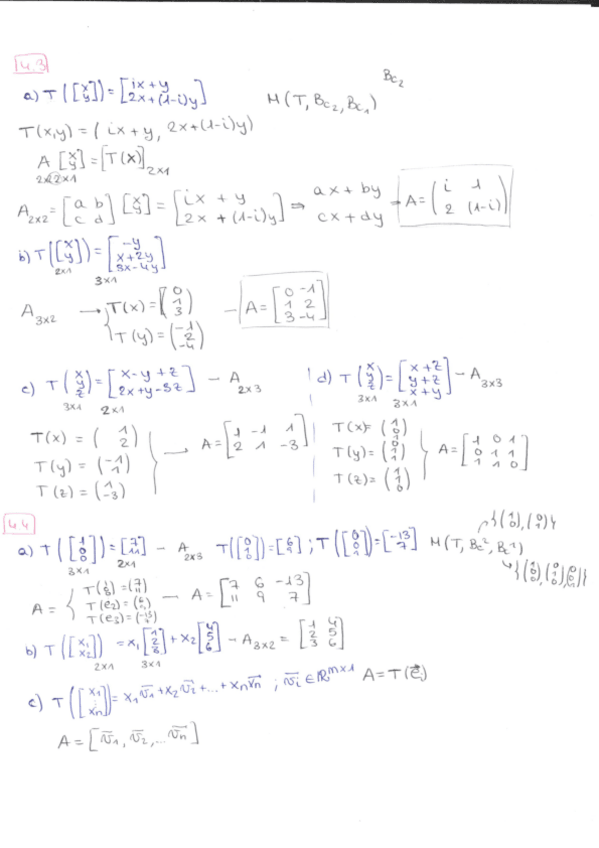 4.3
B_{C_2}
a) T([x y]) = [ix+y 2x+(1-i)y] M(T, B_{C_2}, B_{C_1})
T(x,y) = (ix+y, 2x+(1-i)y)
A [x y] = [T(x)]_{2x1}
2x2 2x1
A_{2x2} = [a b c d] [x y] = [ix + y 2x + (1-i)y] ⇒ ax + by cx + dy → A = (i 1 2 (1-i))
b) T([x y]) = [-y x+2y 3x-4y]
2x1 3x1
A_{3x2} → { T(x) = (0 1 3) T(y) = (-1 2 -4) — A = [0 -1 1 2 3 -4]
c) T(x y z) = [x-y+z 2x+y-3z] - A_{2x3}
3x1 2x1
T(x) = (1 2)
T(y) = (-1 1) } → A = [1 -1 1 2 1 -3]
T(z) = (1 -3)
d) T(x y z) = [x+z y+z x+y] - A_{3x3}
3x1 3x1
T(x) = (1 0 1)
T(y) = (0 1 1) } A = [1 0 1 0 1 1 1 1 0]
T(z) = (1 1 0)
4.4
a) T([1 0 0]) = [7 11] - A_{2x3} T([0 1 0]) = [6 9] ; T([0 0 1]) = [-13 7] M(T, B_c^2, B_c^1)
3x1 2x1
{(1 0), (0 1)}
{(1 0 0), (0 1 0), (0 0 1)}
A = { T(1 0 0) = (7 11) T(e_2) = (6 9) T(e_3) = (-13 7) — A = [7 6 -13 11 9 7]
b) T([x_1 x_2]) = x_1 [1 2 3] + x_2 [4 5 6] - A_{3x2} = [1 4 2 5 3 6]
2x1 3x1
c) T([x_1 ⋮ x_n]) = x_1 v_1 + x_2 v_2 + ... + x_n v_n ; v_i ∈ ℝ^{m×1} A = T(e_i)
A = [v_1, v_2, ... v_n]